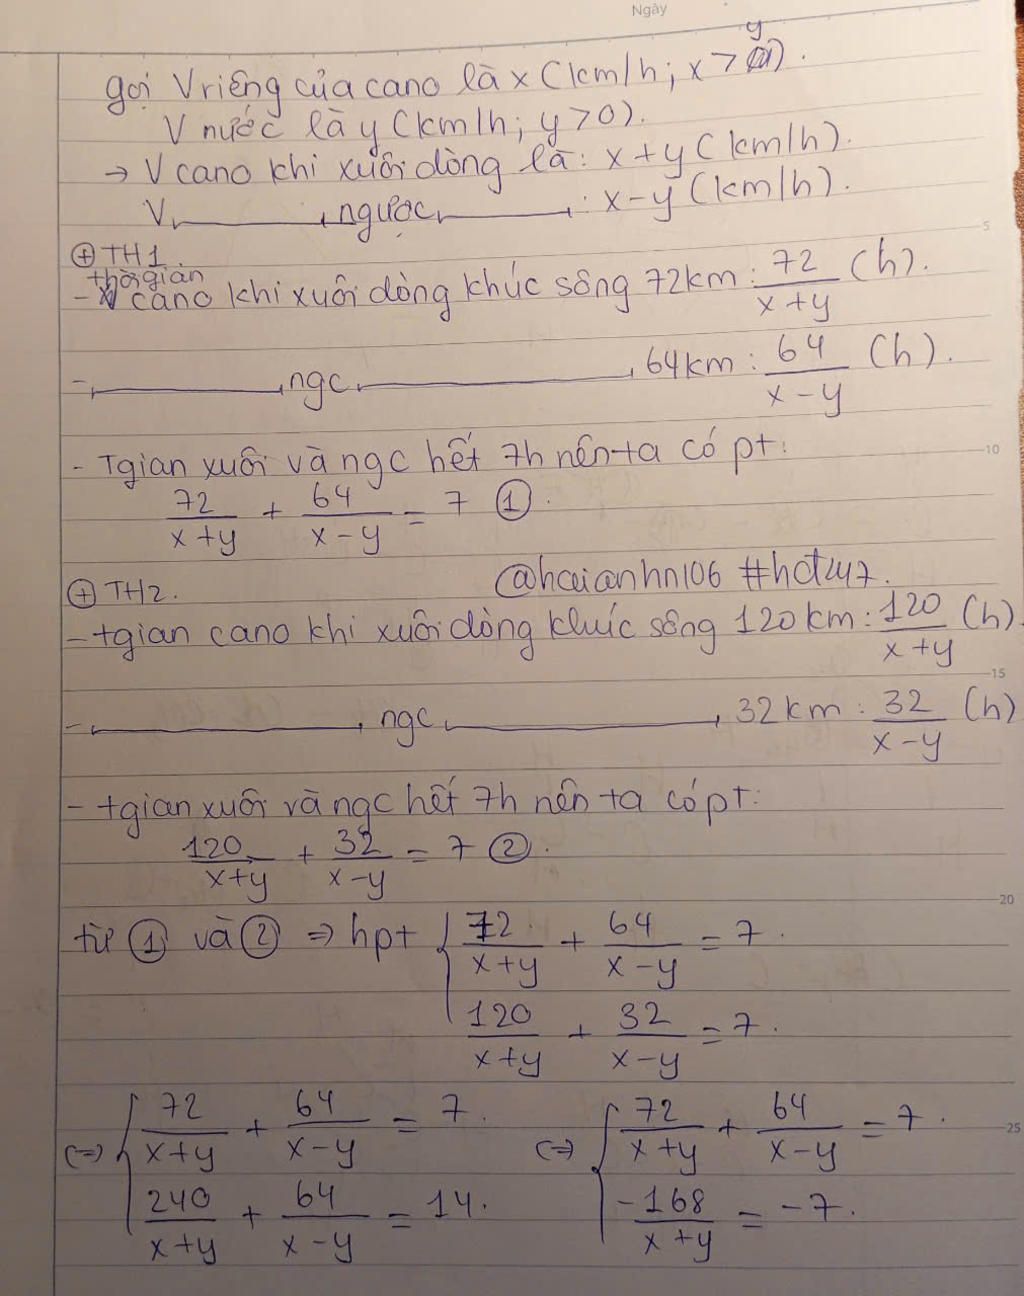 Ngày
gọi Vriêng của cano là x (km/h; x > y).
V nước là y (km/h; y > 0).
→ V cano khi xuôi dòng là: x + y (km/h).
V ——— ngược ——— : x - y (km/h).
⊕ TH1.
thời gian
- cano khi xuôi dòng khúc sông 72km: 72/(x+y) (h).
- ——— ngc ——— 64km: 64/(x-y) (h).
- Tgian xuôi và ngc hết 7h nên ta có pt:
72/(x+y) + 64/(x-y) = 7 ①.
@haianhn106 #hdt247.
⊕ TH2.
- tgian cano khi xuôi dòng khúc sông 120km: 120/(x+y) (h).
- ——— ngc ——— 32km: 32/(x-y) (h)
- tgian xuôi và ngc hết 7h nên ta có pt:
120/(x+y) + 32/(x-y) = 7 ②.
từ ① và ② ⇒ hpt { 72/(x+y) + 64/(x-y) = 7.
120/(x+y) + 32/(x-y) = 7.
⇔ { 72/(x+y) + 64/(x-y) = 7. ⇔ { 72/(x+y) + 64/(x-y) = 7.
240/(x+y) + 64/(x-y) = 14. -168/(x+y) = -7.
5
10
15
20
25